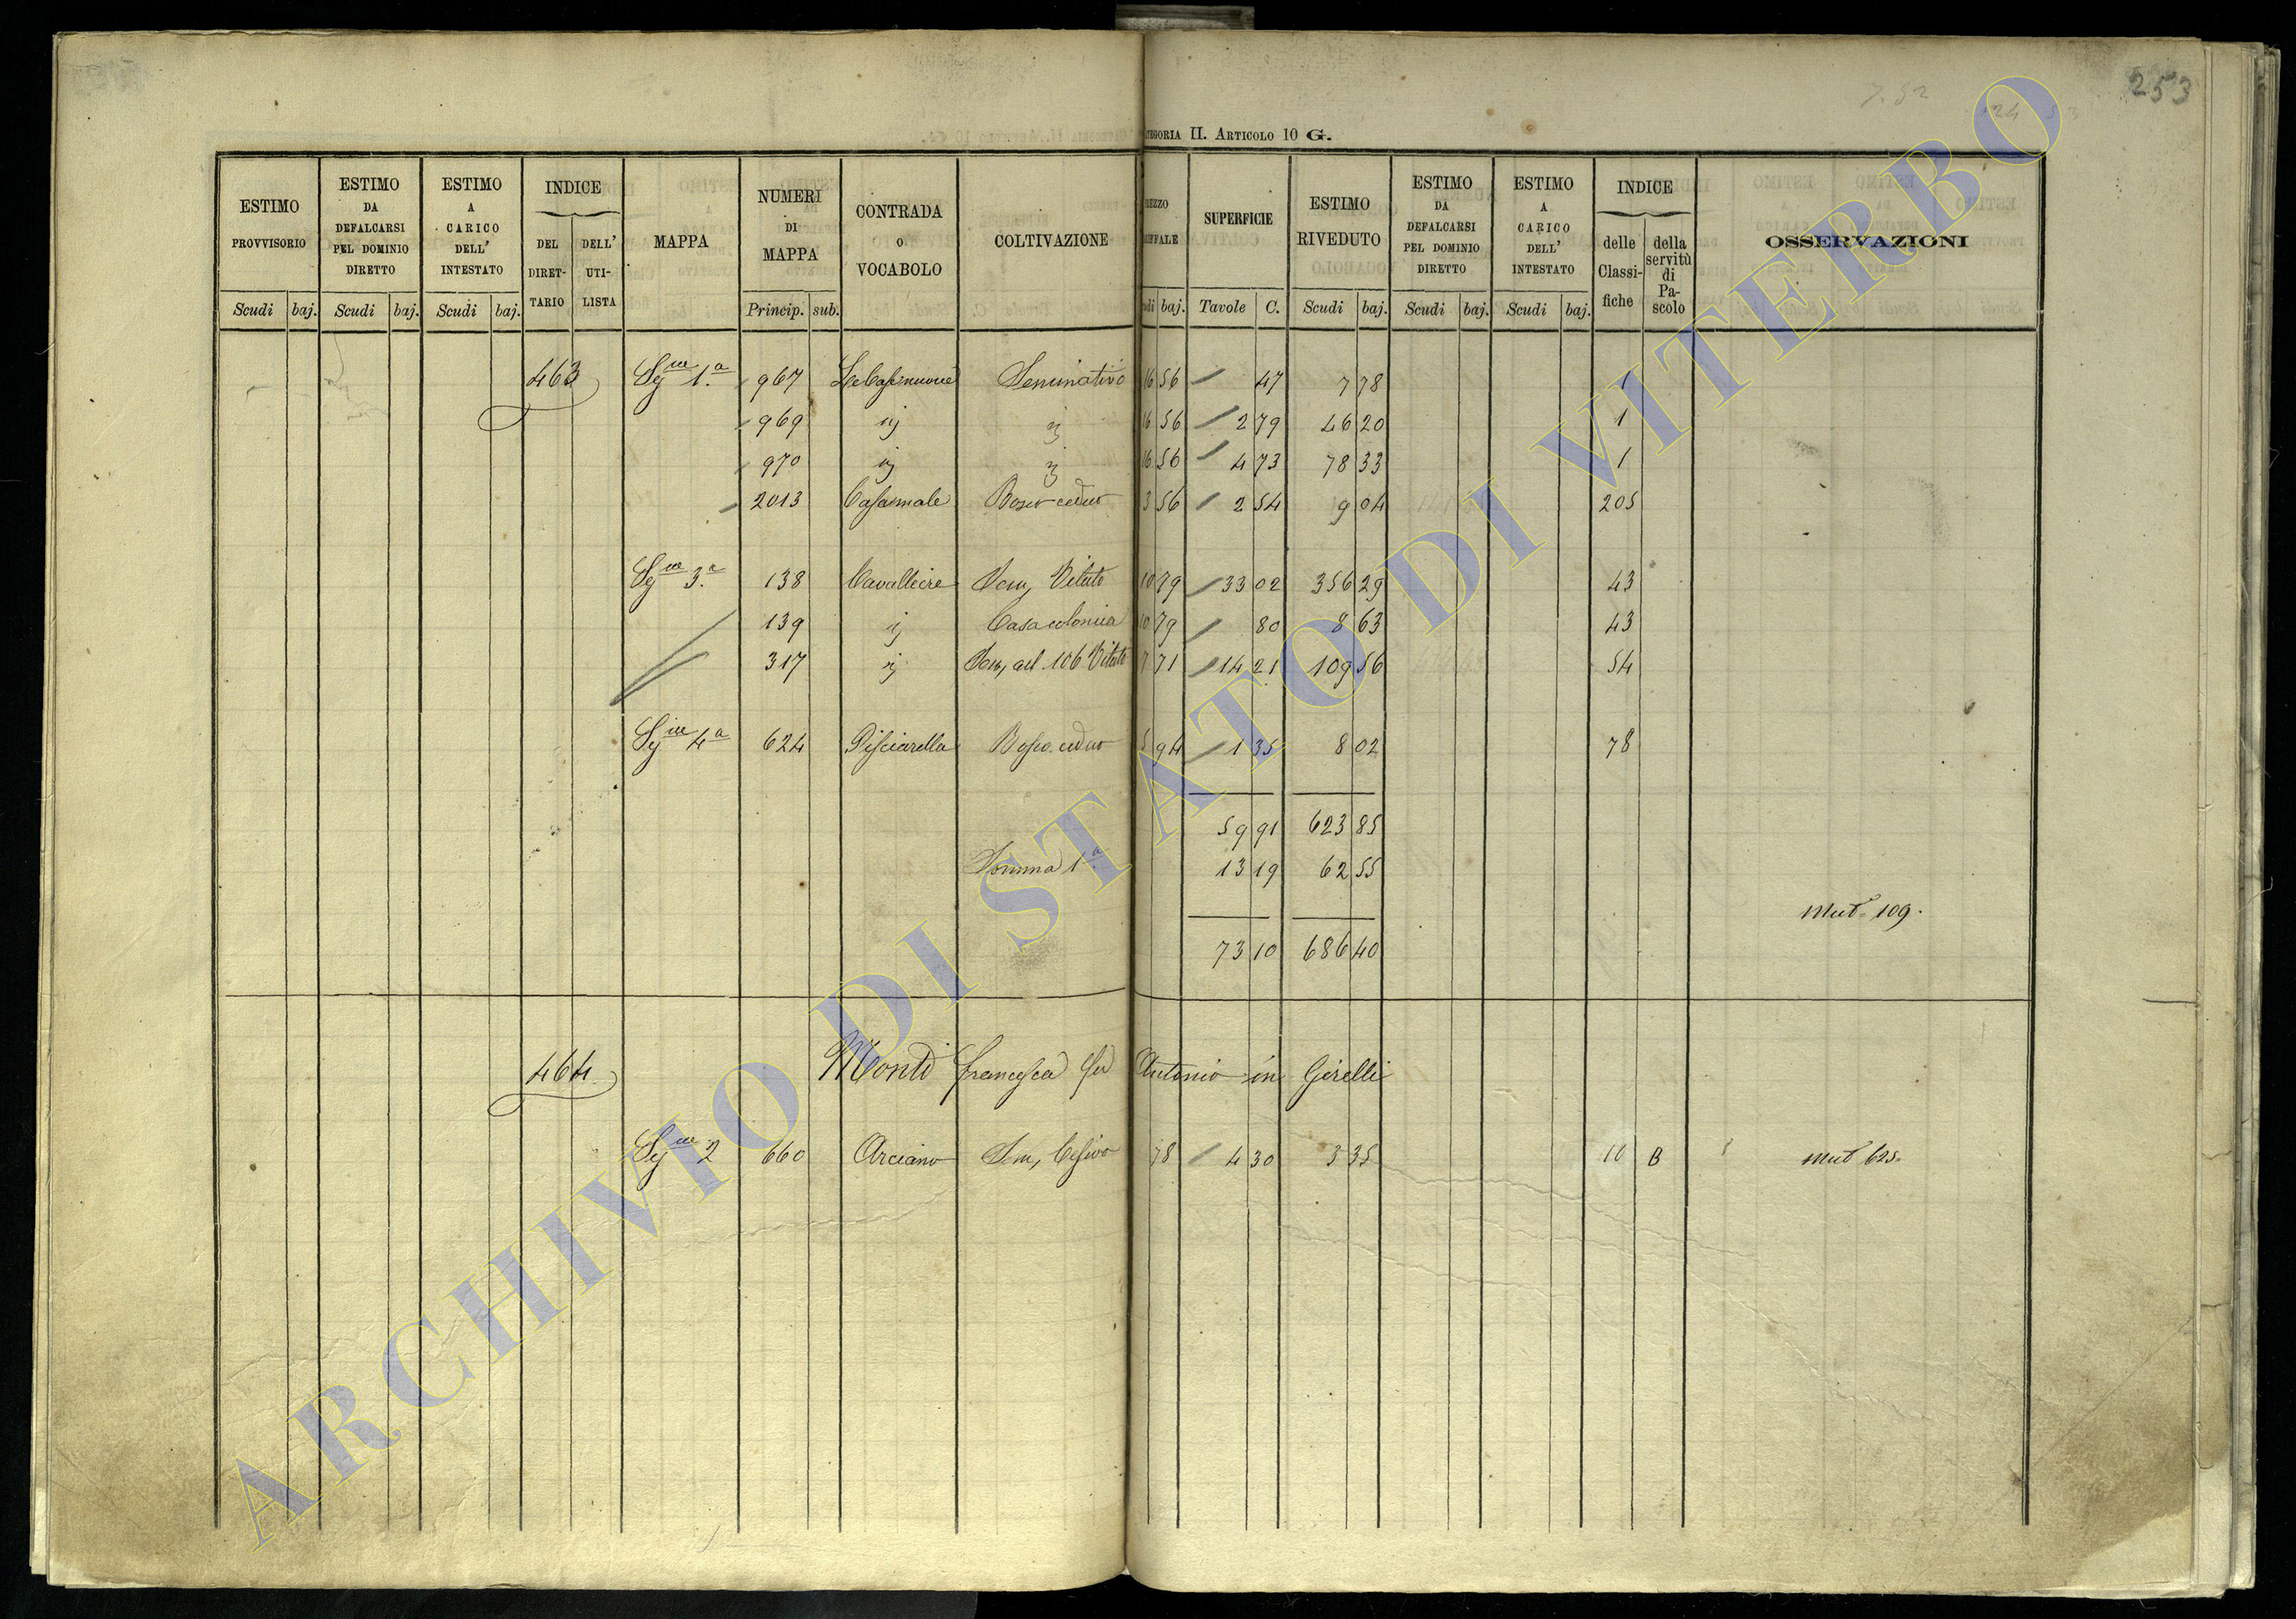 253
7. 52
ATEGORIA II. ARTICOLO 10 G.
ESTIMO PROVVISORIO Scudi baj.
ESTIMO DA DEFALCARSI PEL DOMINIO DIRETTO Scudi baj.
ESTIMO A CARICO DELL' INTESTATO Scudi baj.
INDICE DEL DIRET- TARIO DELL' UTI- LISTA
MAPPA
NUMERI DI MAPPA Princip. sub.
CONTRADA O VOCABOLO
COLTIVAZIONE
EZZO FFALE di baj.
SUPERFICIE Tavole C.
ESTIMO RIVEDUTO Scudi baj.
ESTIMO DA DEFALCARSI PEL DOMINIO DIRETTO Scudi baj.
ESTIMO A CARICO DELL' INTESTATO Scudi baj.
INDICE delle Classi- fiche della servitù di Pa- scolo
OSSERVAZIONI
463 Sg.ne 1.a 967 Le Case nuove Seminativo 16 56 47 7 78 1
969 ij ij 16 56 2 79 46 20 1
970 ij ij 16 56 4 73 78 33 1
2013 Casamale Bosco ceduo 3 56 2 54 9 04 205
Sg.ne 3.a 138 Cavalliere Sem, Vitato 10 79 33 02 356 29 43
139 ij Casa colonica 10 79 80 8 63 43
317 ij Sem, ad. 106 Vitato 7 71 14 21 109 56 54
Sg.ne 4a 624 Pisciarella Bosco ceduo 5 94 1 35 8 02 78
59 91 623 85
Somma 1.a 13 19 62 55
Mut. 109.
73 10 686 40
464 Monti Francesca fu Antonio in Girelli
Sg.ne 2 660 Arciano Sem, Cesivo 78 4 30 3 35 10 B Mut 625.
ARCHIVIO DI STATO DI VITERBO